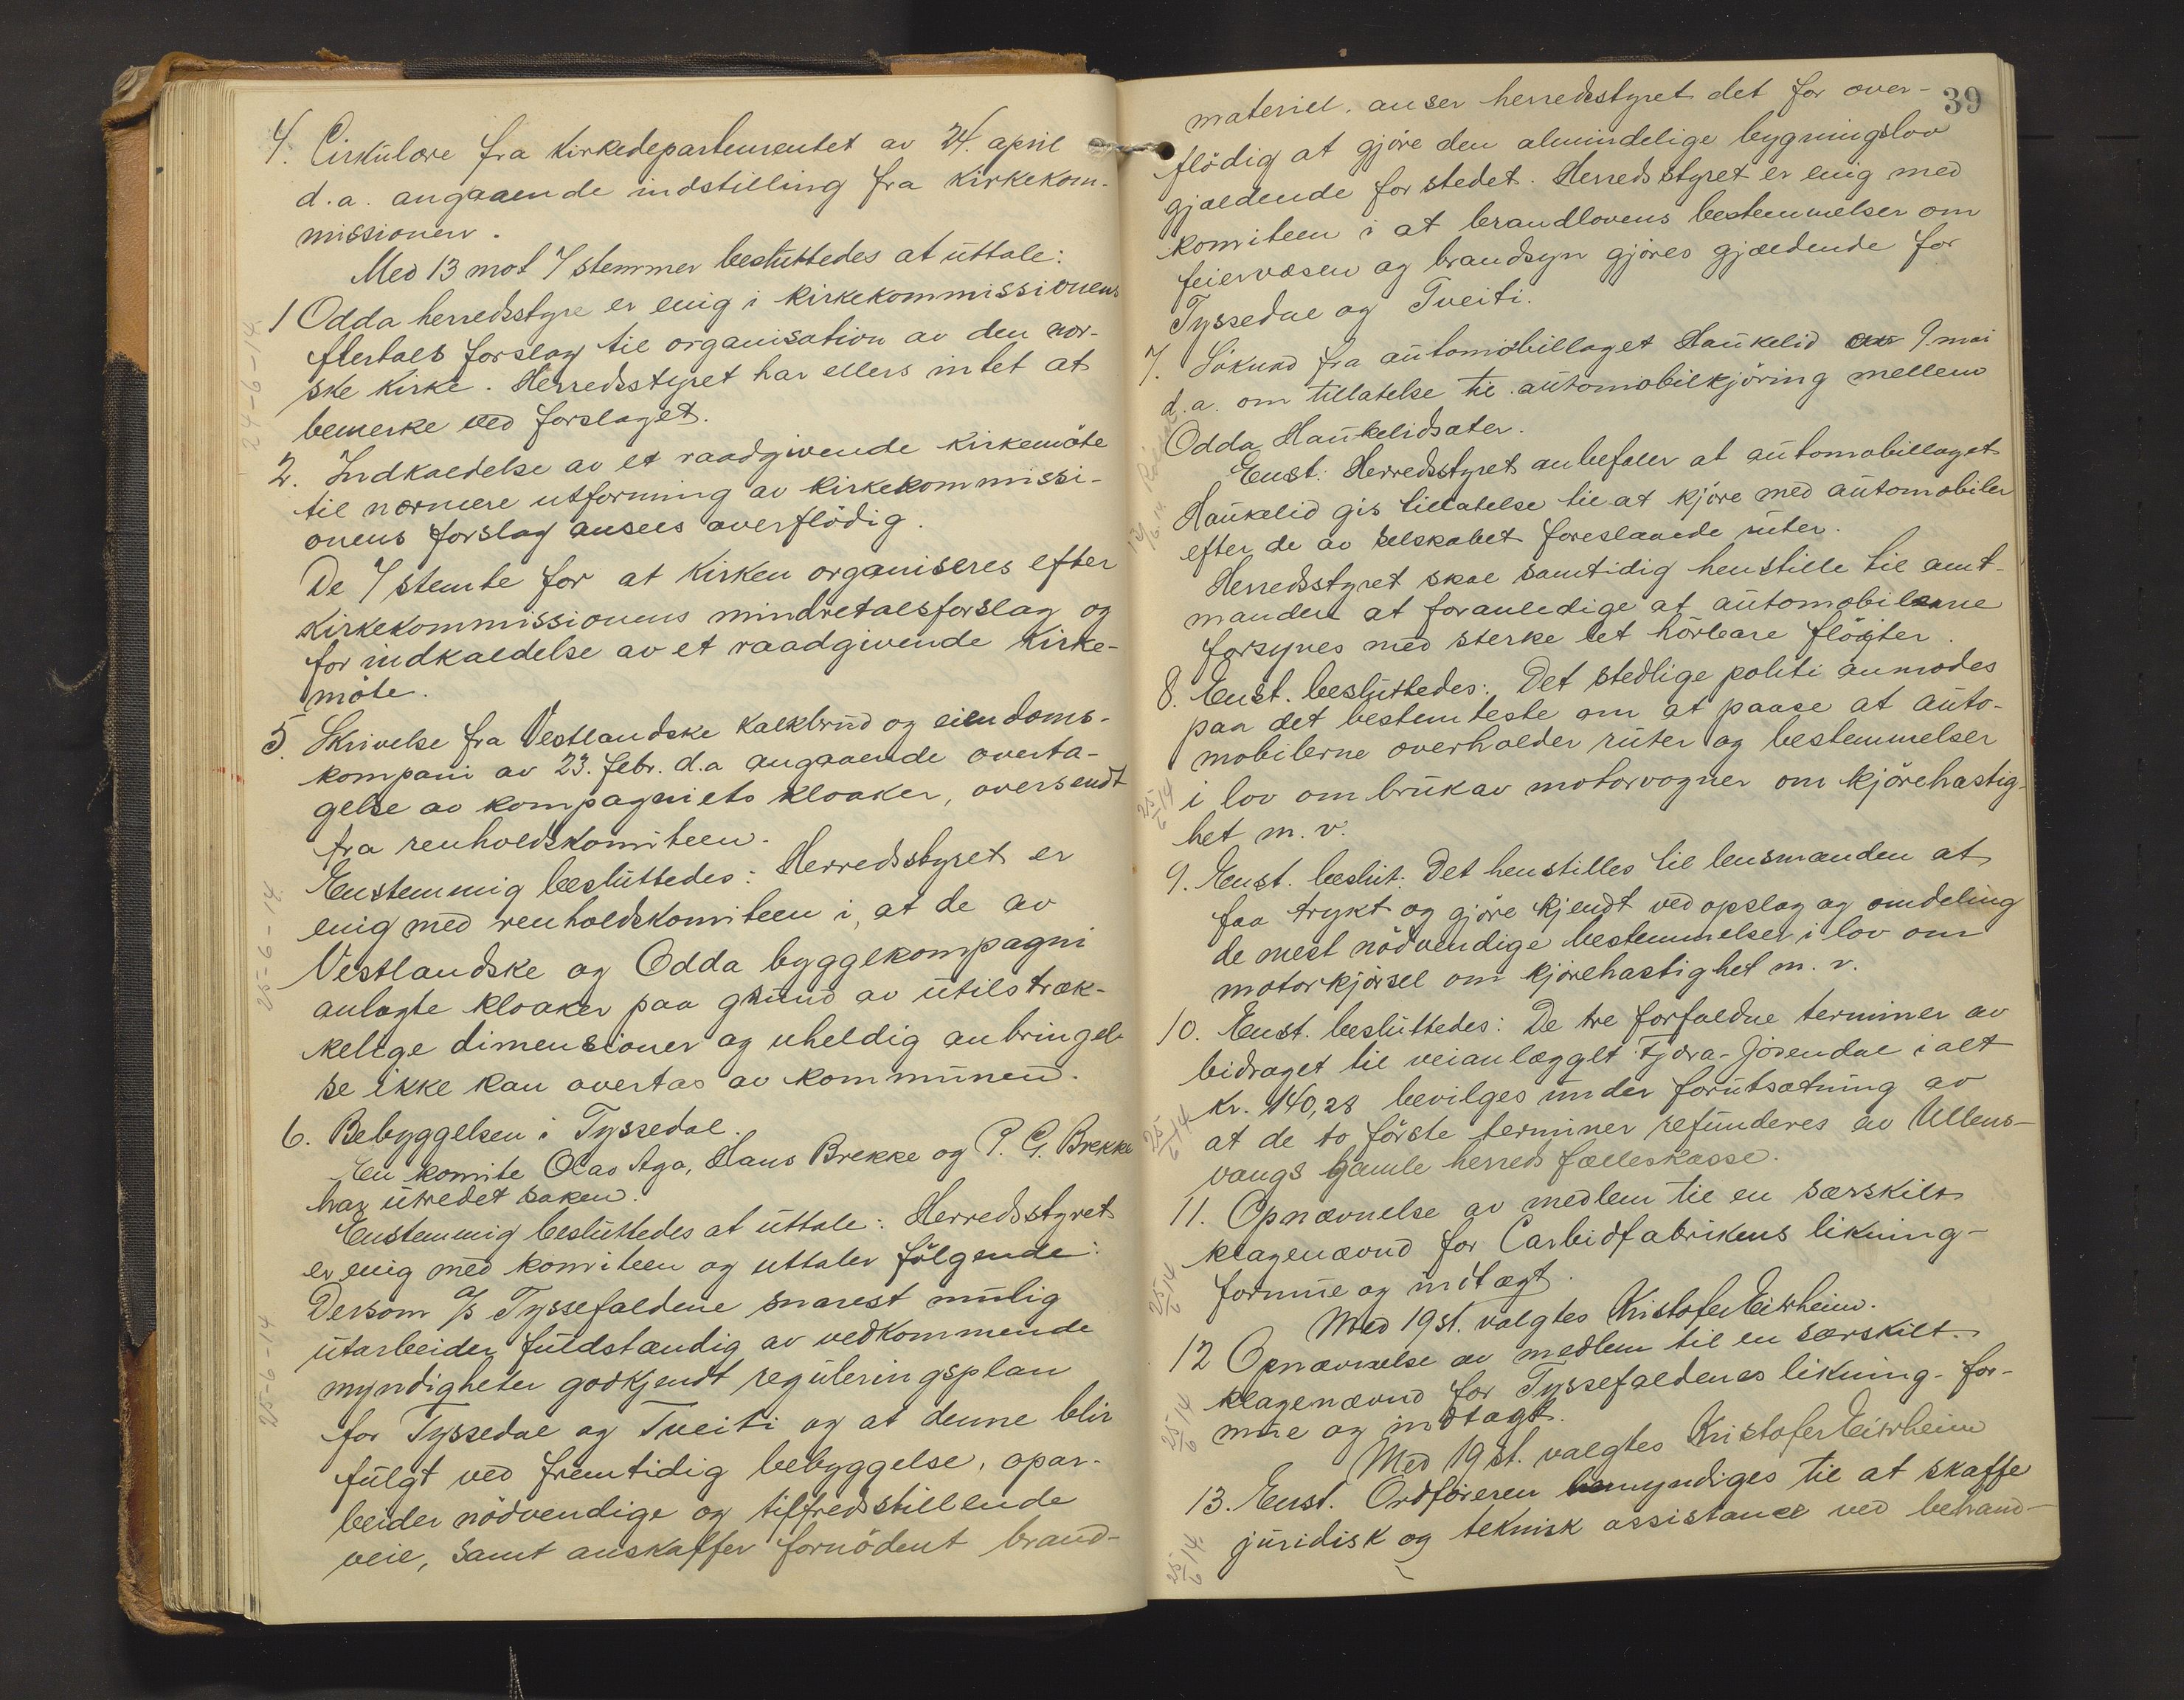 4. Cirkulære fra Kirkedepartementet av 24. april
d.a. angaaende indstilling fra kirkekom-
missionen.
Med 13 mot 7 stemmer besluttedes at uttale:
1 Odda herredsstyre er enig i kirkekommissionens
flertals forslag til organisation av den nor-
ske kirke. Herredsstyret har ellers intet at
bemerke ved forslaget.
24-6-14
2. Indkaldelse av et raadgivende kirkemöte
til nærmere utforming av kirkekommissi-
onens forslag ansees overflödig.
De 7 stemte for at kirken organiseres efter
kirkekommissionens mindretalsforslag og
for indkaldelse av et raadgivende kirke-
möte.
5. Skrivelse fra Vestlandske kalkbrud og eiendoms-
kompani av 23. febr. d.a angaaende overta-
gelse av kompagniets kloaker, oversendt
fra renholdskomiteen.
Enstemmig besluttedes: Herredsstyret er
enig med renholdskomiteen i, at de av
Vestlandske og Odda byggekompagni
anlagte kloaker paa grund av utilstræk-
kelige dimensioner og uheldig anbringel-
se ikke kan overtas av kommunen.
25-6-14
6. Bebyggelsen i Tyssedal.
En komite Olav Aga, Hans Brekke og P. G. Brekke
har utredet saken.
Enstemmig besluttedes at uttale: Herredsstyret
er enig med komiteen og uttaler fölgende:
Dersom a/s Tyssefaldene snarest mulig
utarbeider fuldstændig av vedkommende
myndigheter godkjendt reguleringsplan
for Tyssedal og Tveiti og at denne blir
fulgt ved fremtidig bebyggelse, opar-
beider nödvendige og tilfredsstillende
veie, samt anskaffer fornödent brand-
25-6-14
39
materiel. anser herredsstyret det for over-
flödig at gjöre den almindelige bygningslov
gjældende for stedet. Herredsstyret er enig med
komiteen i at brandlovens bestemmelser om
feiervæsen og brandsyn gjöres gjældende for
Tyssedal og Tveiti.
7. Sökund fra automobillaget Haukelid av 9. mai
d.a. om tillatelse til automobilkjöring mellem
Odda Haukelidsæter.
Enst. Herredsstyret anbefaler at automobillaget
Haukelid gis tillatelse til at kjöre med automobiler
efter de av selskabet foreslaaede ruter.
Herredsstyret skal samtidig henstille til amt-
manden at foranledige at automobilerne
forsynes med sterke let hörbare flöiter.
8. Enst. besluttedes: Det stedlige politi anmodes
paa det bestemteste om at paase at auto-
mobilerne overholder ruter og bestemmelser
i lov om bruk av motorvogner om kjörehastig-
het m.v.
25/6 14
9. Enst. beslut: Det henstilles til lensmanden at
faa trykt og gjöre kjendt ved opslag og omdeling
de mest nödvendige bestemmelser i lov om
motorkjörsel om kjörehastighet m.v.
10. Enst. besluttedes: De tre forfaldne terminer av
bidraget til veianlægget Fjæra-Jösendal ialt
kr. 140,28 bevilges under forutsætning av
at de to förste terminer refunderes av Ullens-
vangs gamle herreds fælleskasse.
25/6 14
11. Opnævnelse av medlem til en særskilt
klagenævnd for Carbidfabrikens likning-
formue og indtægt.
25/6 14
Med 19 st. valgtes Kristofer Eitrheim.
12 Opnævnelse av medlem til en særskilt
klagenævnd for Tyssefaldenes likning- for-
mue og indtægt.
25/6 14
Med 19 st. valgtes Kristofer Eitrheim
13. Enst. Ordföreren bemyndiges til at skaffe
juridisk og teknisk assistance ved behand-
25/6 14